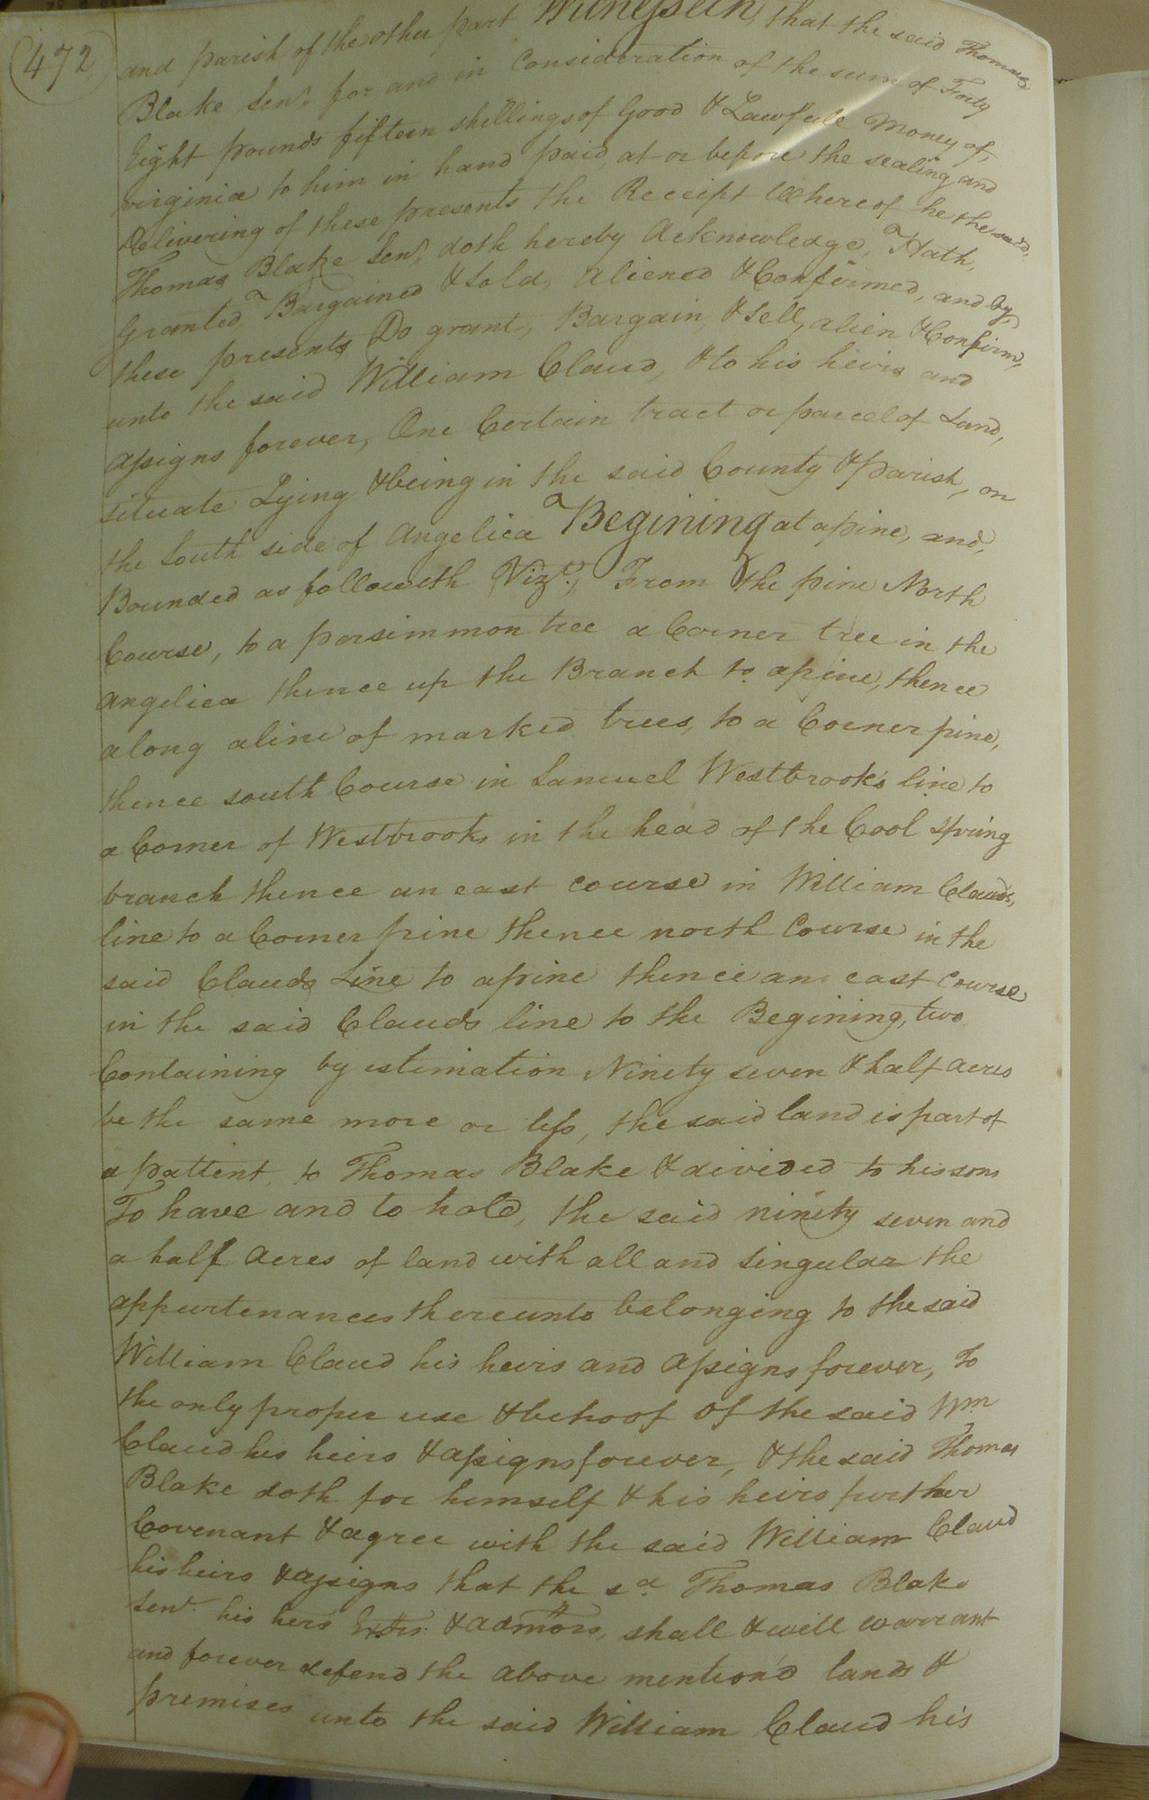 472
and parish of the other part Witnesseth, that the said Thomas
Blake Senr. for and in Consideration of the sum of Forty
Eight pounds fifteen shillings of Good & Lawfull Money of,
virginia to him in hand paid at or before the sealing and
Delivering of these presents the Receipt Whereof he the said,
Thomas Blake Senr. doth hereby Acknowledge, Hath,
Granted, Bargained & Sold, aliened & Confirmed, and by,
these presents Do grant, Bargain, & Sell, alien & Confirm,
unto the said William Claud, & to his heirs and
assigns forever, One Certain tract or parcel of Land,
situate Lying & being in the said County & Parish, on
the South side of Angelica Begining at a pine, and,
Bounded as followeth Vizt., From the pine North
Course, to a porsimmon tree a Corner tree in the
angelica thence up the Branch to a pine, thence
along a line of marked trees, to a Corner pine,
thence south Course in Samuel Westbrook's line to
a Corner of Westbrooks in the head of the Cool Spring
branch thence an east course in William Clauds,
line to a Corner pine thence north Course in the
said Clauds Line to a pine thence an east Course
in the said Clauds line to the Begining, two
Containing by estimation Ninety seven & half acres
be the same more or less, the said land is part of
a pattent, to Thomas Blake & divided to his sons
To have and to hold, the said ninety seven and
a half Acres of land with all and Singular the
appurtenances thereunto belonging to the said
William Claud his heirs and assigns forever, to
the only proper use & behoof of the said Wm
Claud his heirs & assigns forever, & the said Thomas
Blake doth for hemself & his heirs further
Covenant & agree with the said William Claud
his heirs & assigns that the sd. Thomas Blake
Senr. his hers Extrs. & admors, shall & will warrant
and forever defend the above mention'd lands &
premises unto the said William Claud his